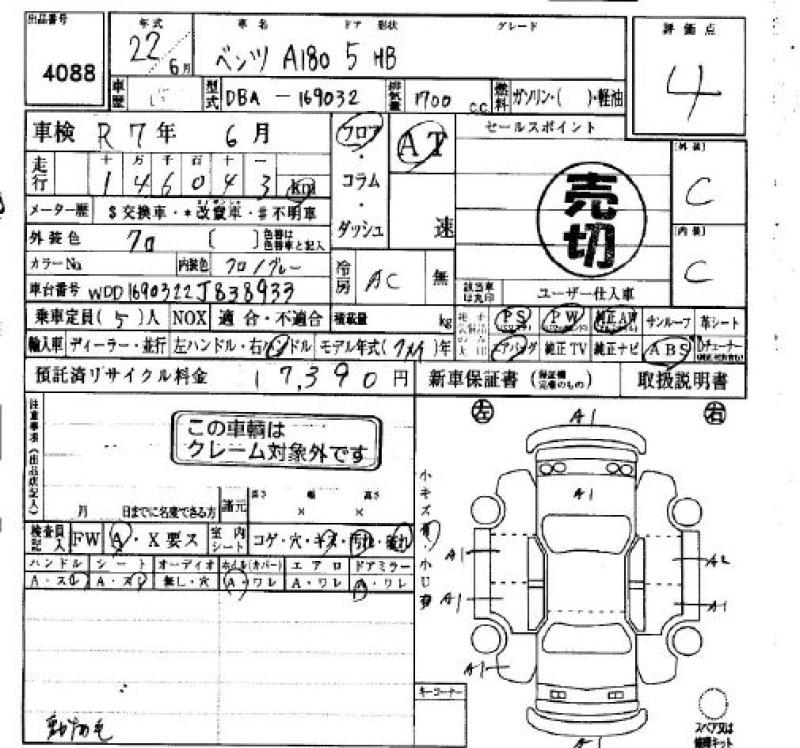 出品番号
4088
年式
22
6月
車名
ドア 形状
グレード
ベンツ A180 5 HB
評価点
4
車歴
型式
DBA - 169032
排気量
1700 c.c.
燃料
ガソリン・( )・軽油
車検 R 7年 6月
フロア・コラム・ダッシュ
AT
速
セールスポイント
売切
ユーザー仕入車
[外装]
C
[内装]
C
走行
十 万 千 百 十 一
1 4 6 0 4 3 km
メーター歴 $交換車・*改竄車・#不明車
外装色 クロ [ ] 色替は色替車と記入
カラーNo.
内装色 クロ/グレー
冷房 AC 無
車台番号 WDD1690322J838933
該当車は丸印
乗車定員(5)人 NOX 適合・不適合 積載量 kg
PS PW 純正AW サンルーフ 革シート
輸入車 ディーラー・並行 左ハンドル・右ハンドル モデル年式( )年
エアバッグ 純正TV 純正ナビ ABS Dチューナー
預託済リサイクル料金 17,390円
新車保証書 (保証欄完備のもの) 取扱説明書
注意事項(出品店記入)
この車輌は
クレーム対象外です
月 日までに名変できる方
諸元
長さ 幅 高さ
× ×
検査員記入
FW A・X要ス
室内シート
コゲ・穴・キズ・汚れ・破れ
ハンドル シート オーディオ ホイル(カバー) エアロ ドアミラー
A・スレ A・スレ 無し・穴 A・ワレ A・ワレ A・ワレ
小キズ有・小U有
左
右
A1
A1
A1
A2
A1
A1
A1
A1
キーコーナー
スペア又は
修理キット